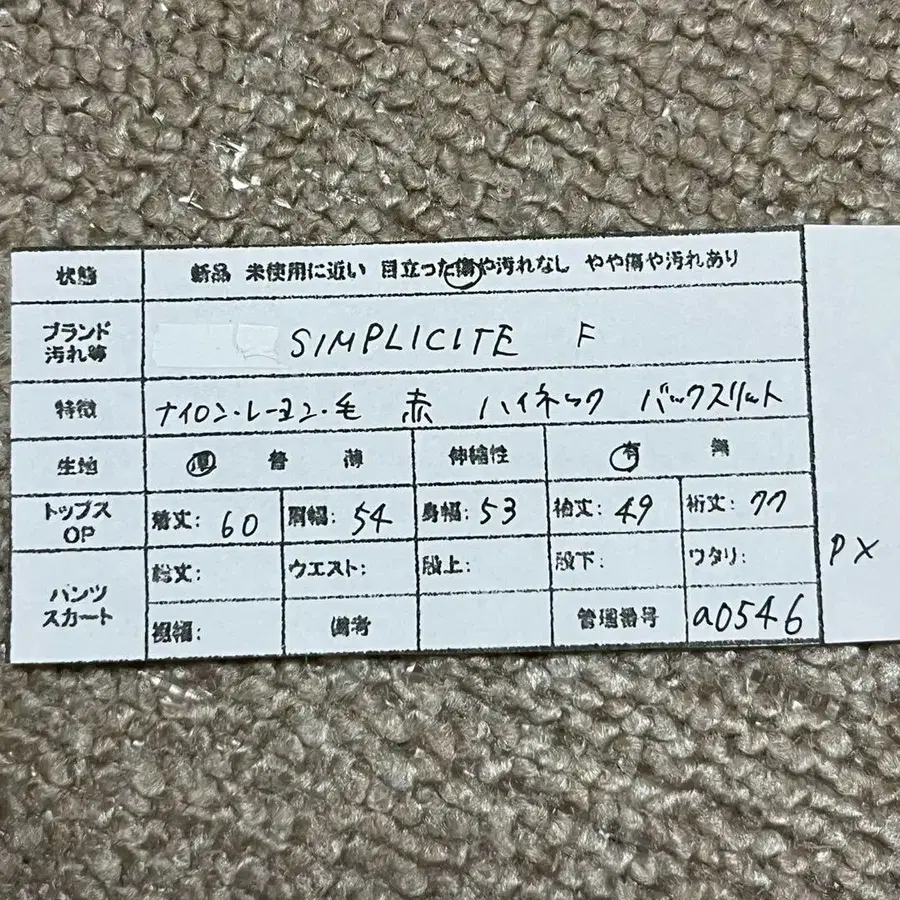 状態 新品 未使用に近い 目立った傷や汚れなし やや傷や汚れあり
ブランド
汚れ等 SIMPLICITE F
特徴 ナイロン・レーヨン・毛 赤 ハイネック バックスリット
生地 厚 普 薄 伸縮性 有 無
トップス
OP 着丈: 60 肩幅: 54 身幅: 53 袖丈: 49 裄丈: 77
パンツ
スカート 総丈: ウエスト: 股上: 股下: ワタリ:
裾幅: 備考 管理番号 a0546
PX